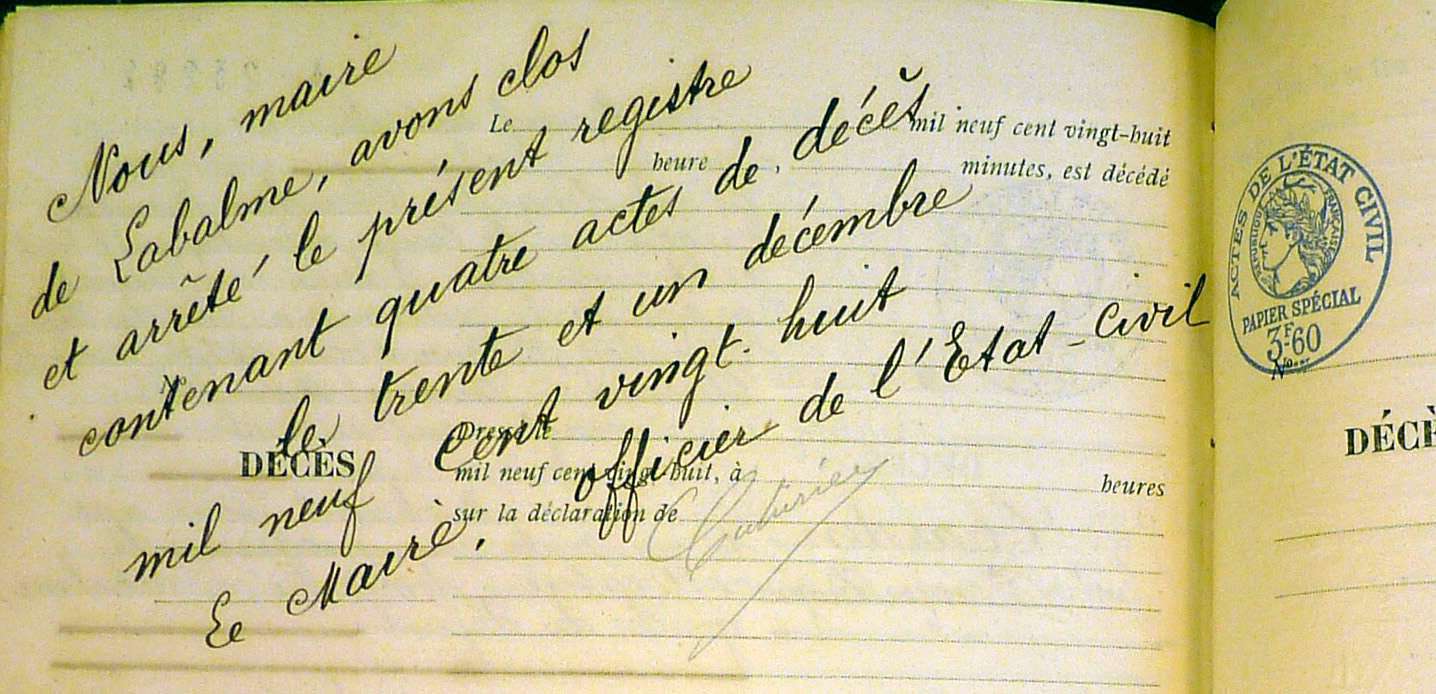 Nous, maire
de Labalme, avons clos
et arrêté le présent registre
contenant quatre actes de décès
le trente et un décembre
mil neuf cent vingt-huit
Le Maire, officier de l'Etat-civil
Le mil neuf cent vingt-huit
heure , minutes, est décédé
DÉCÈS
Dressé le
mil neuf cent vingt-huit, à heures
sur la déclaration de
ACTES DE L'ÉTAT CIVIL
RÉPUBLIQUE FRANÇAISE
PAPIER SPÉCIAL
3F.60
No
DÉCÈ